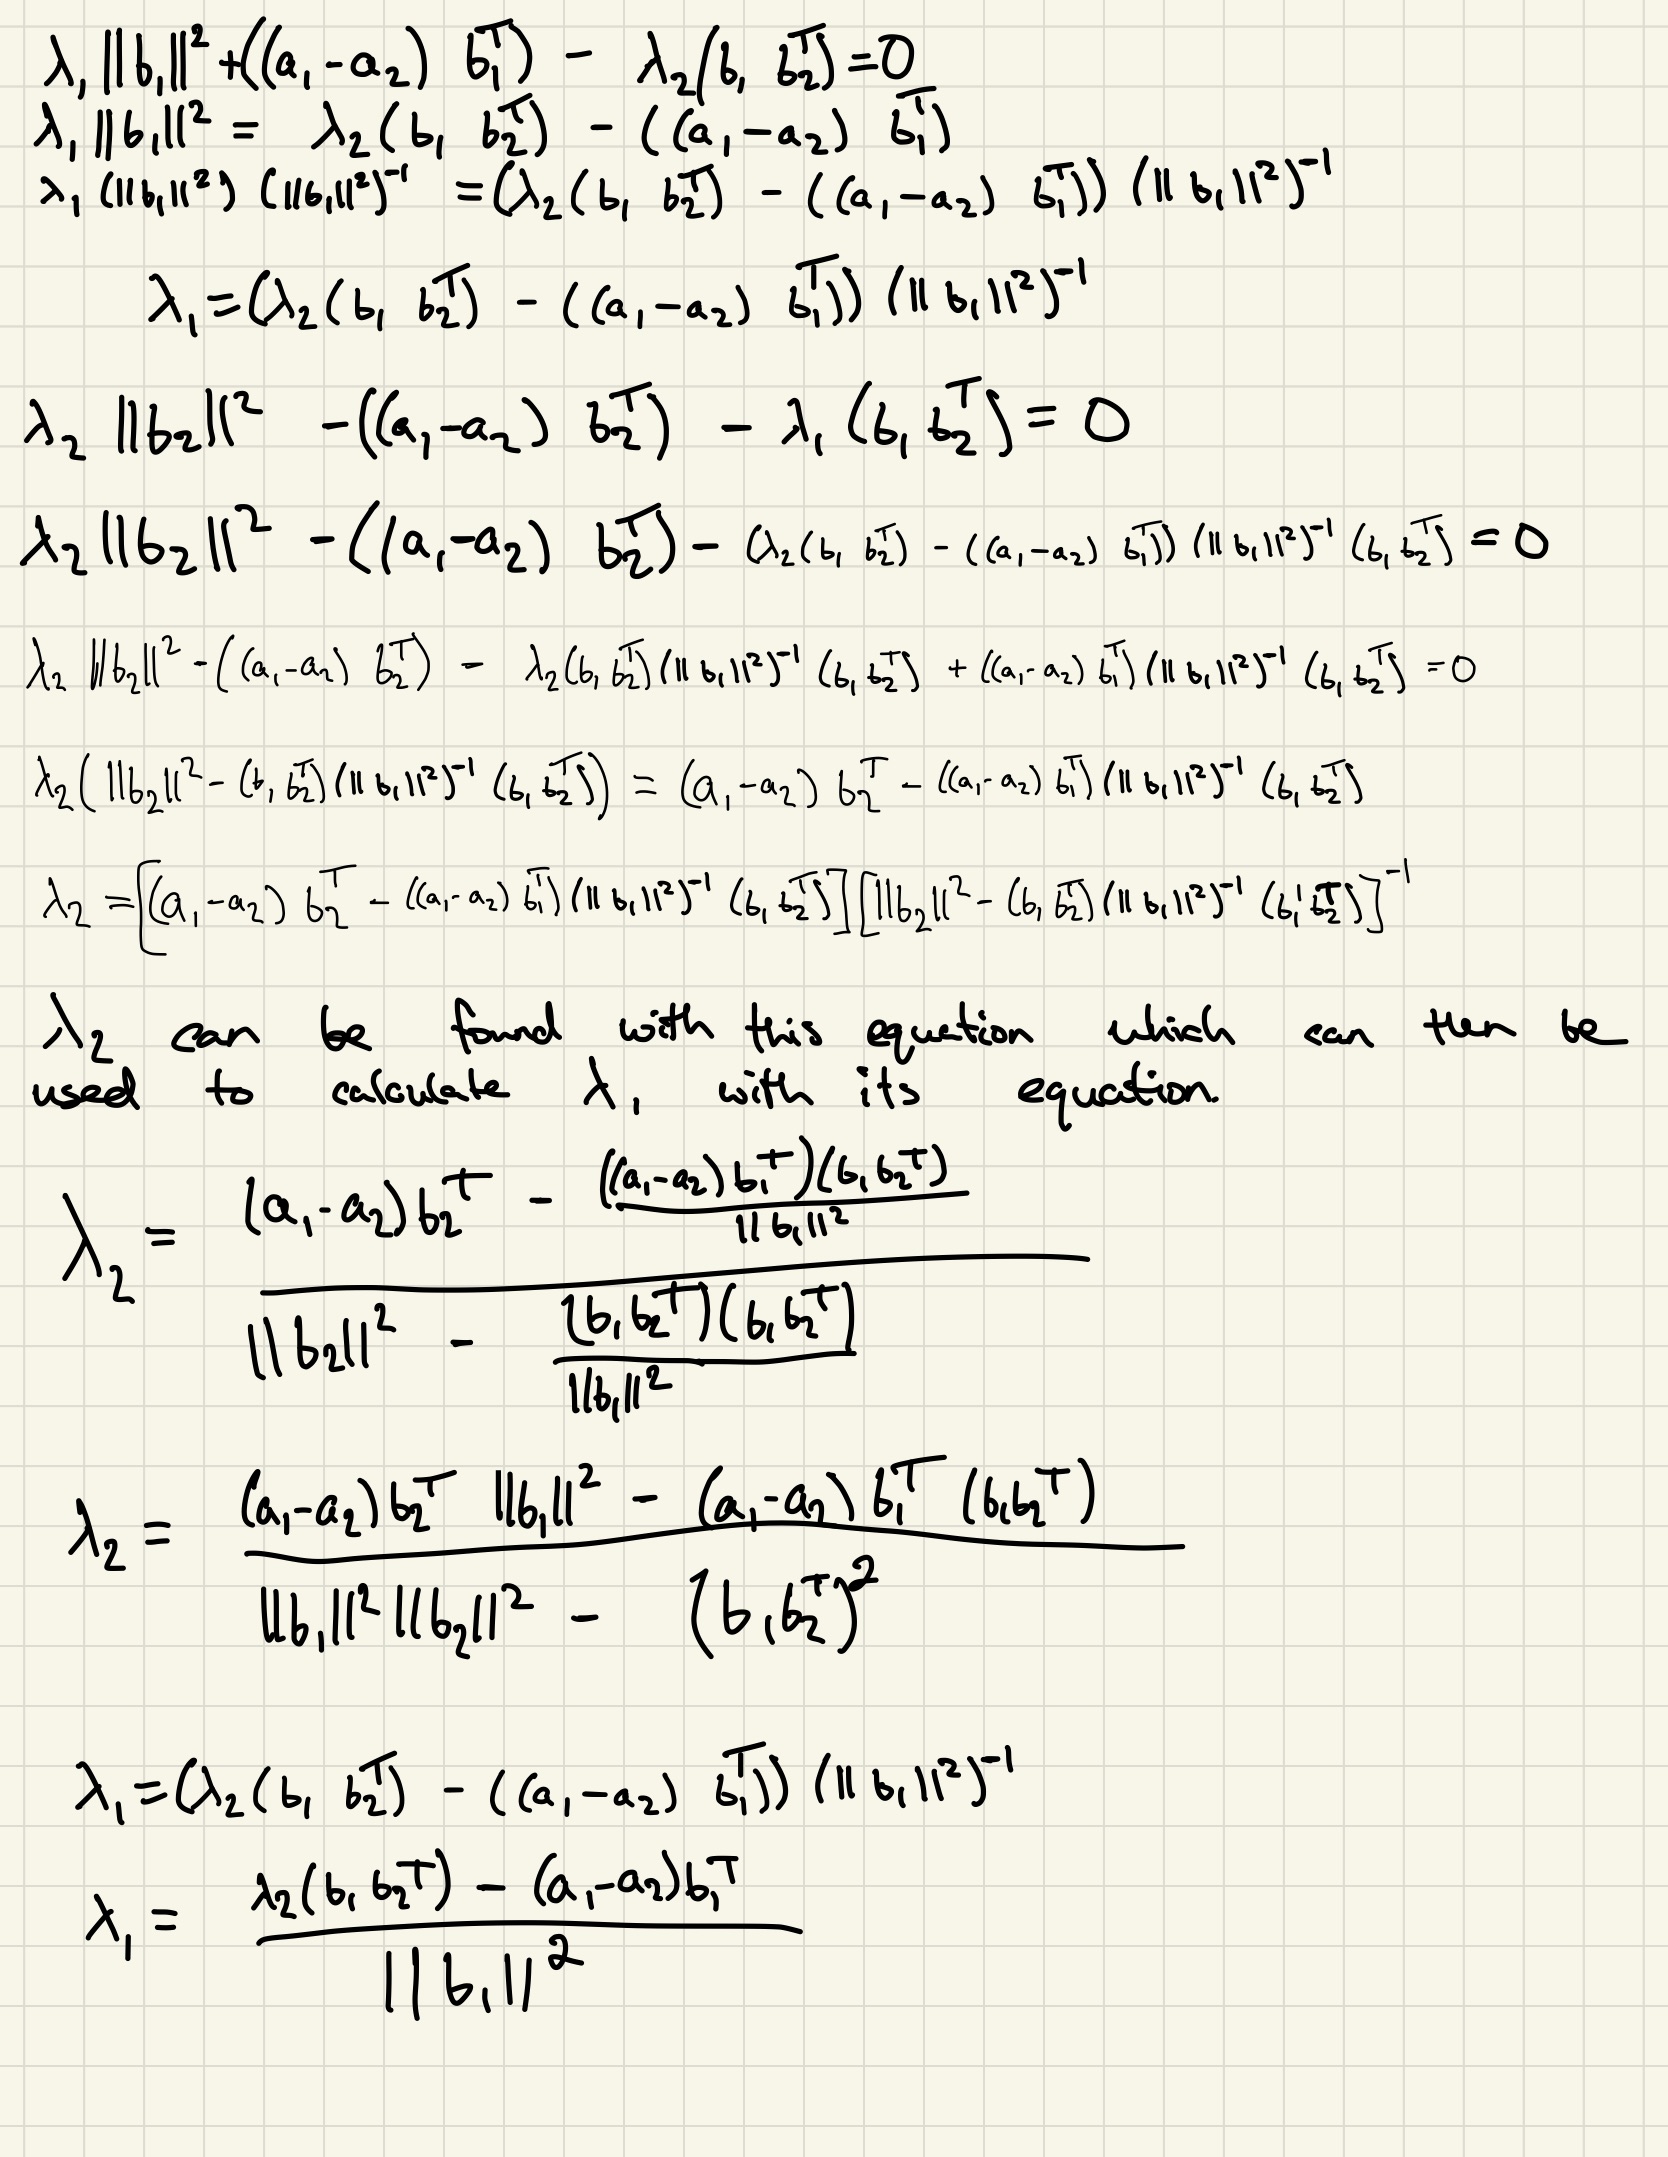 λ₁ ||b₁||² + ((a₁-a₂) b₁ᵀ) - λ₂(b₁ b₂ᵀ) = 0
λ₁ ||b₁||² = λ₂(b₁ b₂ᵀ) - ((a₁-a₂) b₁ᵀ)
λ₁ (||b₁||²) (||b₁||²)⁻¹ = (λ₂(b₁ b₂ᵀ) - ((a₁-a₂) b₁ᵀ)) (||b₁||²)⁻¹
λ₁ = (λ₂(b₁ b₂ᵀ) - ((a₁-a₂) b₁ᵀ)) (||b₁||²)⁻¹
λ₂ ||b₂||² - ((a₁-a₂) b₂ᵀ) - λ₁ (b₁ b₂ᵀ) = 0
λ₂ ||b₂||² - ((a₁-a₂) b₂ᵀ) - (λ₂(b₁ b₂ᵀ) - ((a₁-a₂) b₁ᵀ)) (||b₁||²)⁻¹ (b₁ b₂ᵀ) = 0
λ₂ ||b₂||² - ((a₁-a₂) b₂ᵀ) - λ₂(b₁ b₂ᵀ)(||b₁||²)⁻¹ (b₁ b₂ᵀ) + ((a₁-a₂) b₁ᵀ)(||b₁||²)⁻¹ (b₁ b₂ᵀ) = 0
λ₂(||b₂||² - (b₁ b₂ᵀ)(||b₁||²)⁻¹ (b₁ b₂ᵀ)) = (a₁-a₂) b₂ᵀ - ((a₁-a₂) b₁ᵀ)(||b₁||²)⁻¹ (b₁ b₂ᵀ)
λ₂ = [(a₁-a₂) b₂ᵀ - ((a₁-a₂) b₁ᵀ)(||b₁||²)⁻¹ (b₁ b₂ᵀ)][||b₂||² - (b₁ b₂ᵀ)(||b₁||²)⁻¹ (b₁ b₂ᵀ)]⁻¹
λ₂ can be found with this equation which can then be
used to calculate λ₁ with its equation.
(a₁-a₂)b₂ᵀ - ((a₁-a₂)b₁ᵀ)(b₁b₂ᵀ)
||b₁||²
λ₂ =
||b₂||² - (b₁b₂ᵀ)(b₁b₂ᵀ)
||b₁||²
(a₁-a₂)b₂ᵀ ||b₁||² - (a₁-a₂) b₁ᵀ (b₁b₂ᵀ)
λ₂ =
||b₁||² ||b₂||² - (b₁b₂ᵀ)²
λ₁ = (λ₂(b₁ b₂ᵀ) - ((a₁-a₂) b₁ᵀ)) (||b₁||²)⁻¹
λ₂(b₁ b₂ᵀ) - (a₁-a₂)b₁ᵀ
λ₁ =
||b₁||²